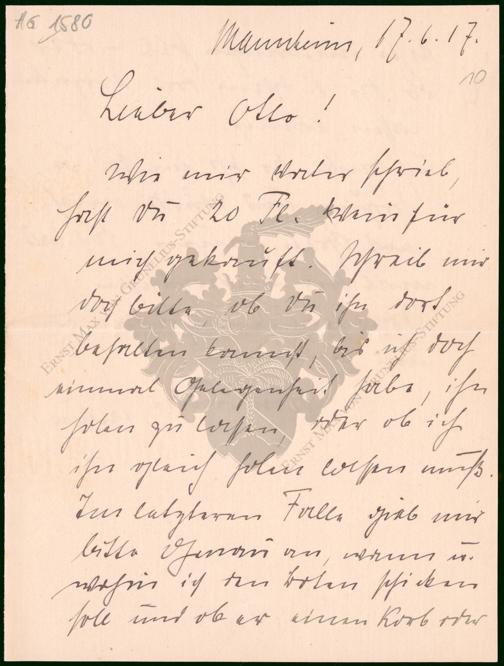 AG 1580
Mannheim, 17.6.17.
10
Lieber Otto!
Wie mir Vater schrieb,
hast Du 20 Fl. Wein für
mich gekauft. Schreib mir
doch bitte, ob Du ihn dort
behalten kannst, bis ich doch
einmal Gelegenheit habe, ihn
holen zu lassen, oder ob ich
ihn gleich holen lassen muß.
Im letzteren Falle gieb mir
bitte genau an, wann u.
wohin ich den Boten schicken
soll und ob er einen Korb oder
ERNST MAX VON GRUNELIUS-STIFTUNG
ERNST MAX VON GRUNELIUS-STIFTUNG